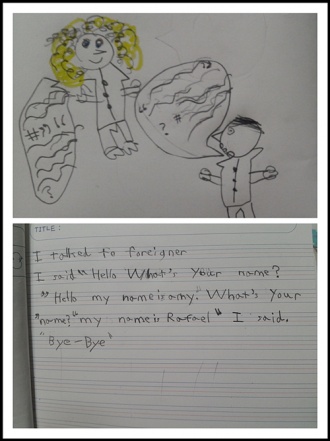 TITLE:
I talked to foreigner
I said "Hello What's your name?
"Hello my name is amy. What's your
"name?" my name is Rafael" I said.
"Bye-Bye"